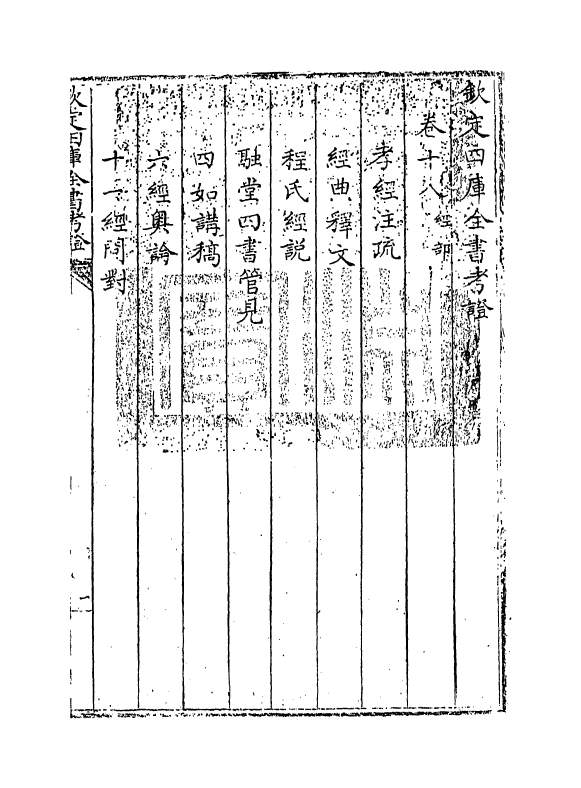 欽定四庫全書考證
卷十八 經部
孝經注疏
經典釋文
程氏經説
融堂四書管見
四如講稿
六經奥論
十一經問對
欽定四庫全書考證
一